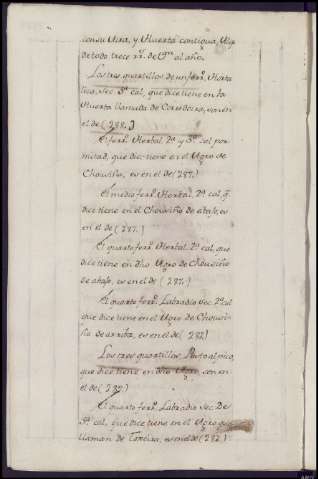 con su Aira, y Huerta contigua,
de todo trece rr.s de v.on al año.
Los tres quartillos de un ferr.o Horta
liza, sec.o 3.a cal, que dice tiene en la
Huerta llamada de Coredoira, son en
el de (288.)
El ferr.o Herbal 2.a y 3.a cal por
mitad, que dice tiene en el Ag.o de
Chousiña, es en el de (287.)
El medio ferr.o Herbal 2.a cal, q.e
dice tiene en el Chousiño de abajo, es
en el de (287.)
El quarto ferr.o Herbal 2.a cal, que
dice tiene en dho Agro de Chousiño
de abajo, es en el de (287.)
El quarto ferr.o Labradio sec.o 2.a cal
que dice tiene en el Agro de Chousi
ño de arriba, es en el de (282)
Los tres quartillos Pasto al pico,
que dice tiene en dho Agro, son en
el de (282.)
El quarto ferr.o Labradio sec.o de
3.a cal, que dice tiene en el Agro que
llaman de Toreiro, es en el de (282.)